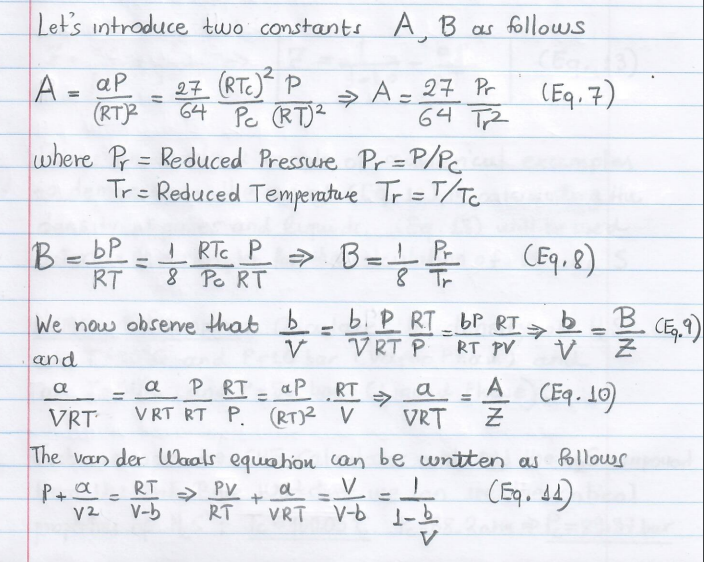 Let's introduce two constants A, B as follows
A = aP/(RT)² = 27/64 (RTc)²/Pc P/(RT)² ⇒ A = 27/64 Pr/Tr² (Eq. 7)
where Pr = Reduced Pressure Pr = P/Pc
Tr = Reduced Temperature Tr = T/Tc
B = bP/RT = 1/8 RTc/Pc P/RT ⇒ B = 1/8 Pr/Tr (Eq. 8)
We now observe that b/V = b/V P/RT RT/P = bP/RT RT/PV ⇒ b/V = B/Z (Eq. 9)
and
a/VRT = a/VRT P/RT RT/P. = aP/(RT)² · RT/V ⇒ a/VRT = A/Z (Eq. 10)
The van der Waals equation can be written as follows
P + a/V² = RT/V-b ⇒ PV/RT + a/VRT = V/V-b = 1/1-b/V (Eq. 11)